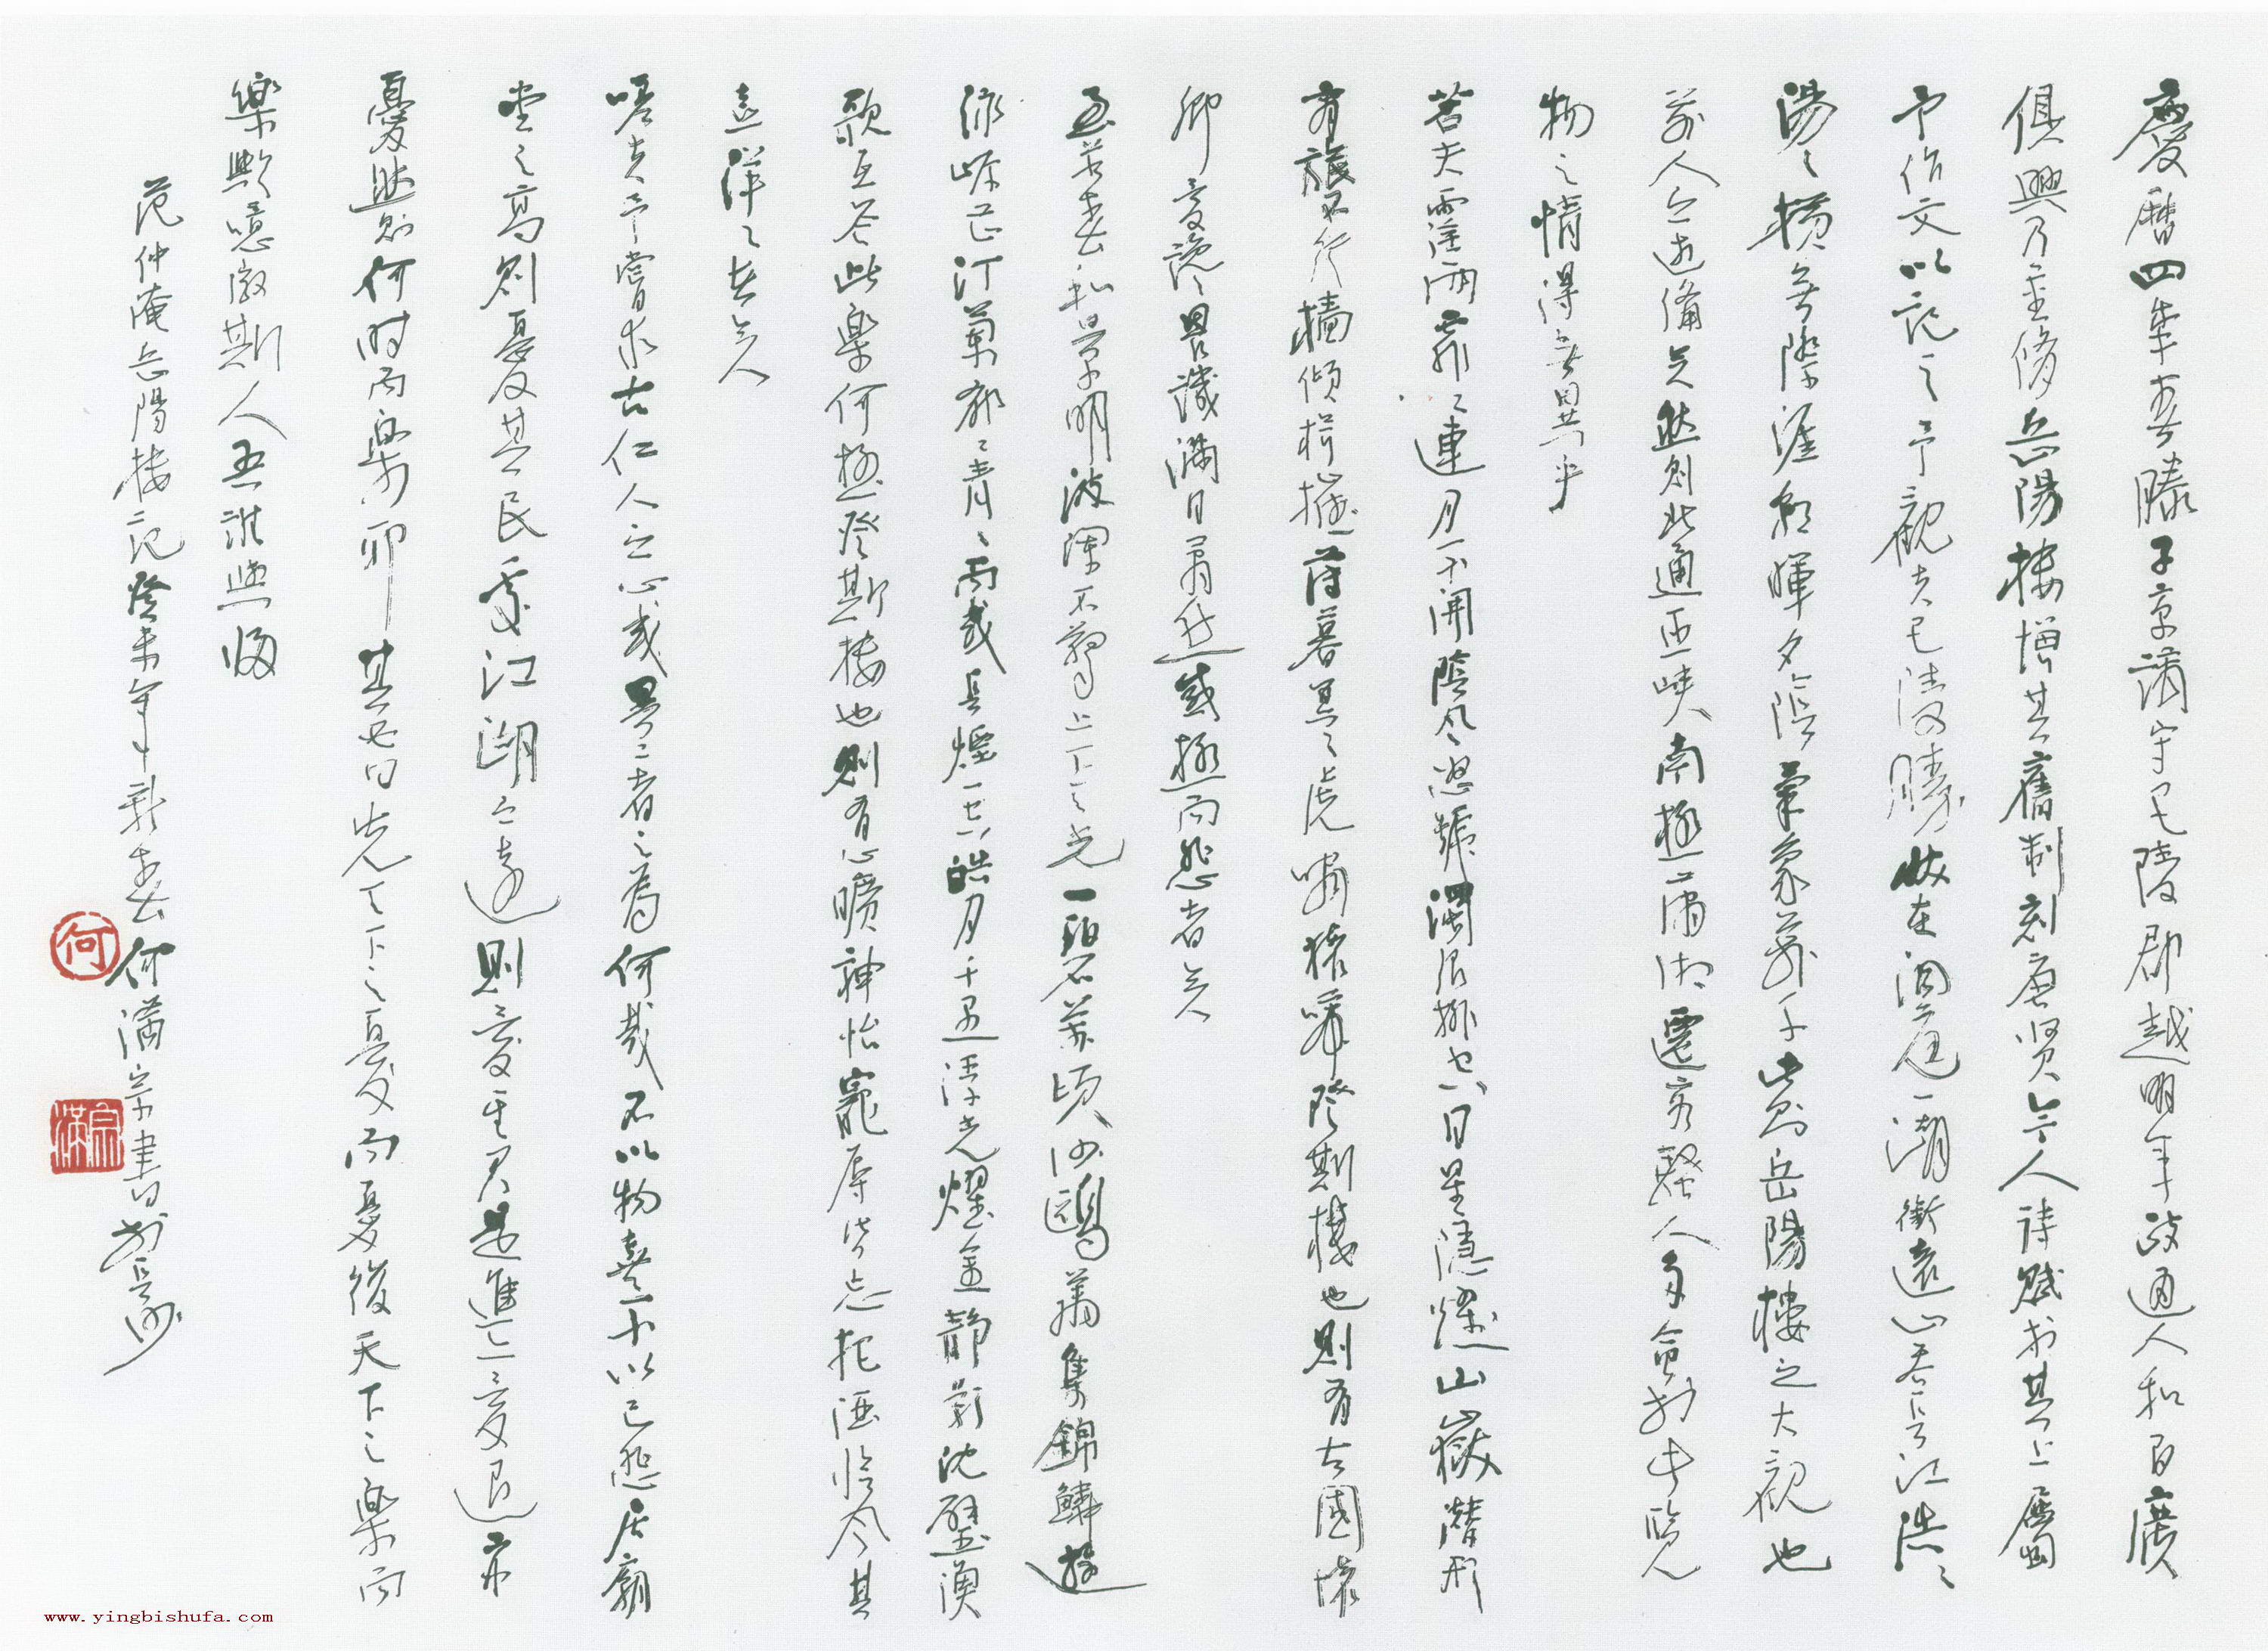 慶曆四年春滕子京謫守巴陵郡越明年政通人和百廢
俱興乃重修岳陽樓增其舊制刻唐贤今人詩賦於其上屬
予作文以記之予觀夫巴陵勝狀在洞庭一湖銜遠山吞長江浩々
湯々橫無際涯朝暉夕陰氣象萬千此則岳陽樓之大觀也
前人之述備矣然則北通巫峽南極瀟湘遷客騷人多會於此覽
物之情得無異乎
若夫霪雨霏々連月不開陰風怒號濁浪排空日星隱耀山嶽潛形
商旅不行檣傾楫摧薄暮冥々虎嘯猿啼登斯樓也則有去國懷
鄉憂讒畏譏滿目蕭然感極而悲者矣
至若春和景明波瀾不驚上下天光一碧萬頃沙鷗翔集錦鱗游
泳岸芷汀蘭郁々青々而或長煙一空皓月千里浮光耀金靜影沈璧漁
歌互答此樂何極登斯樓也則有心曠神怡寵辱皆忘把酒臨風其
喜洋々者矣
嗟夫予嘗求古仁人之心或異二者之為何哉不以物喜不以己悲居廟
堂之高則憂其民處江湖之遠則憂其君是進亦憂退亦
憂然則何时而樂耶其必曰先天下之憂而憂後天下之樂而
樂歟噫微斯人吾誰與歸
范仲淹岳陽樓記癸未年新春何滿宗書於長沙
何
宗滿
www.yingbishufa.com